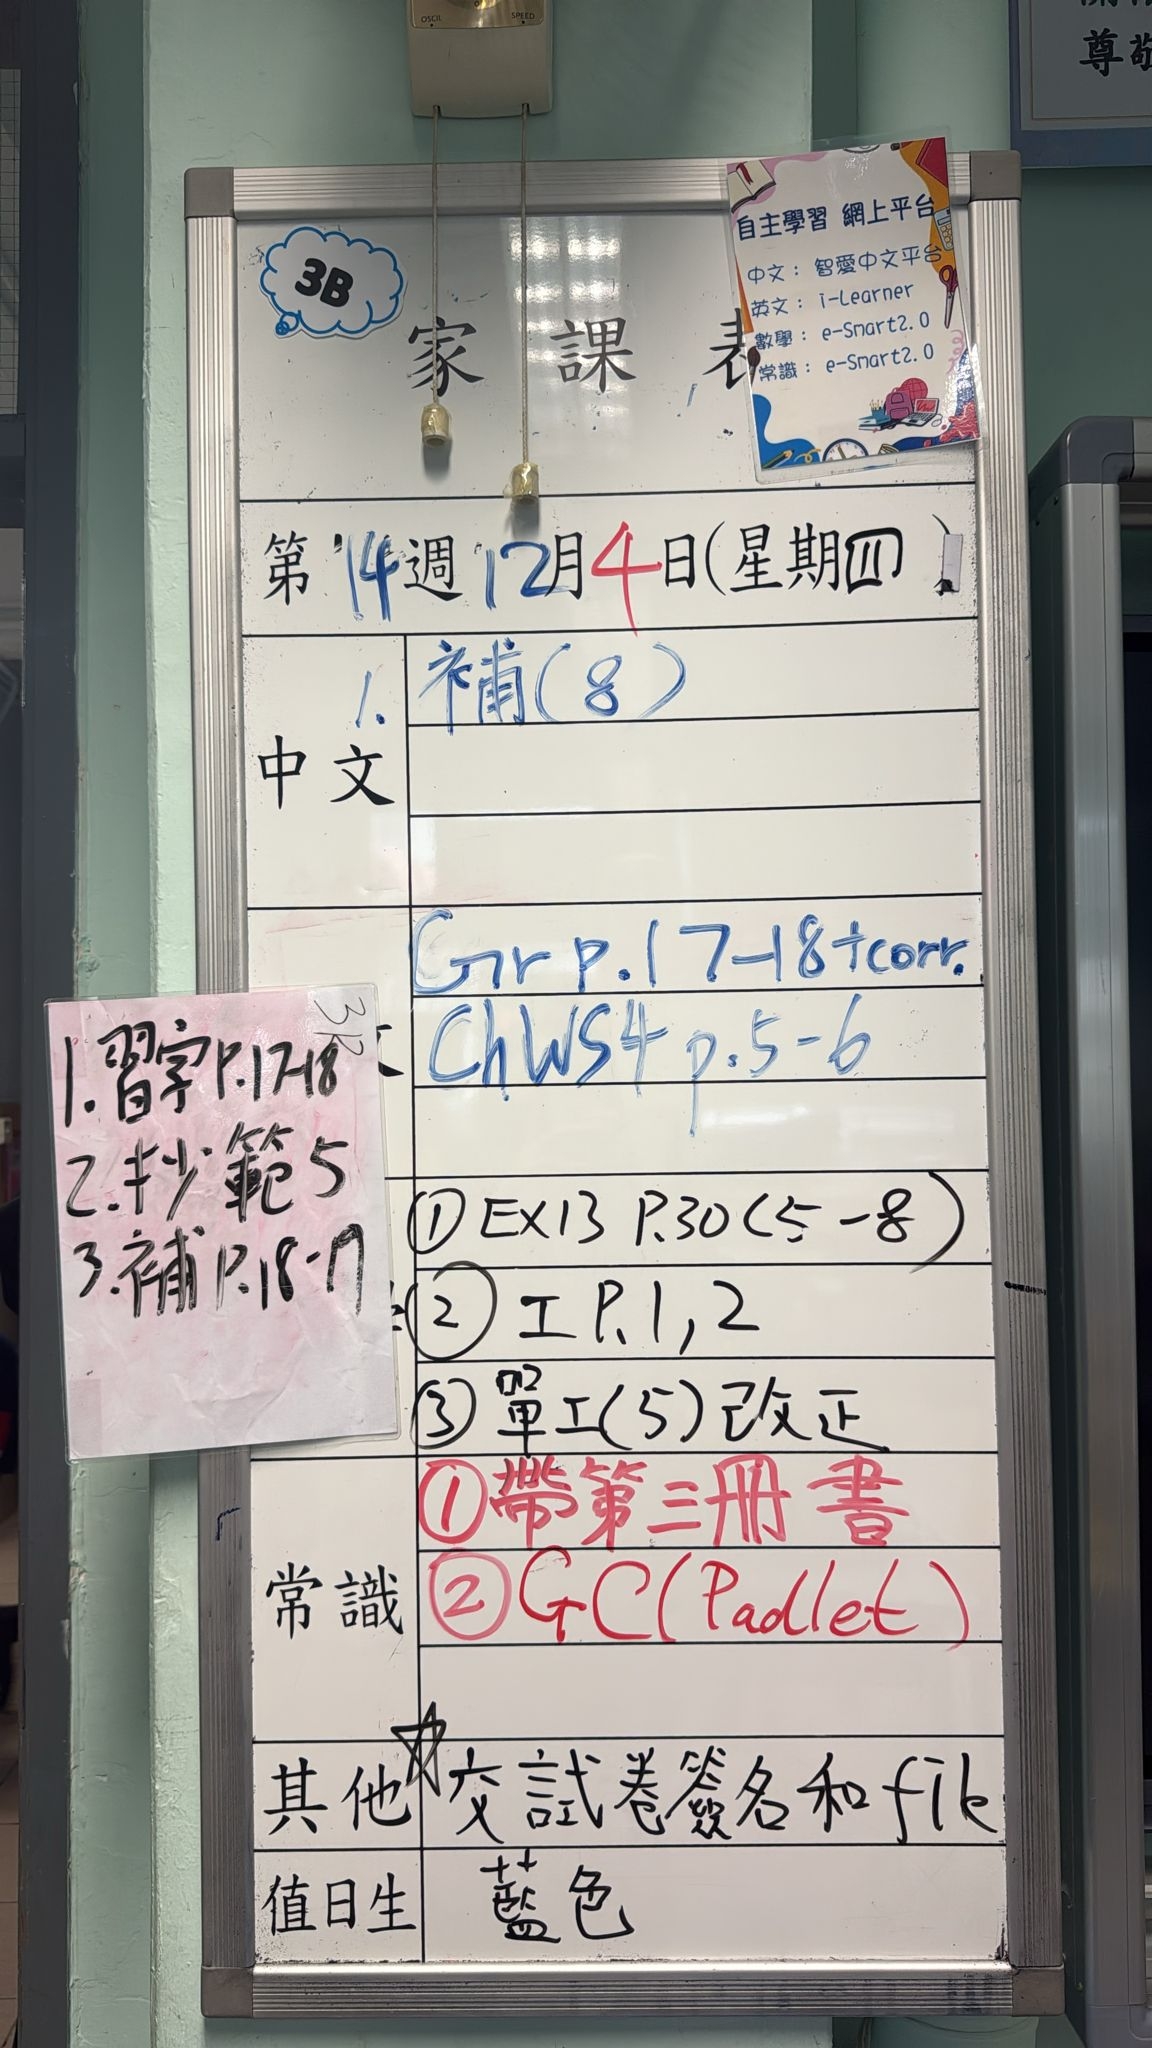 OSCIL SPEED
尊敬
3B
家課表
自主學習 網上平台
中文：智愛中文平台
英文：i-Learner
數學：e-Smart2.0
常識：e-Smart2.0
第14週12月4日(星期四)
中文
1. 補(8)
Gr p.17-18+corr.
ChWS4 p.5-6
3B
1.習字P.17-18
2.抄範5
3.補P.18-19
①EX13 P.30(5-8)
②工P.1,2
③單工(5)改正
常識
①帶第三冊書
②GC(Padlet)
其他
交試卷簽名和file
值日生
藍色